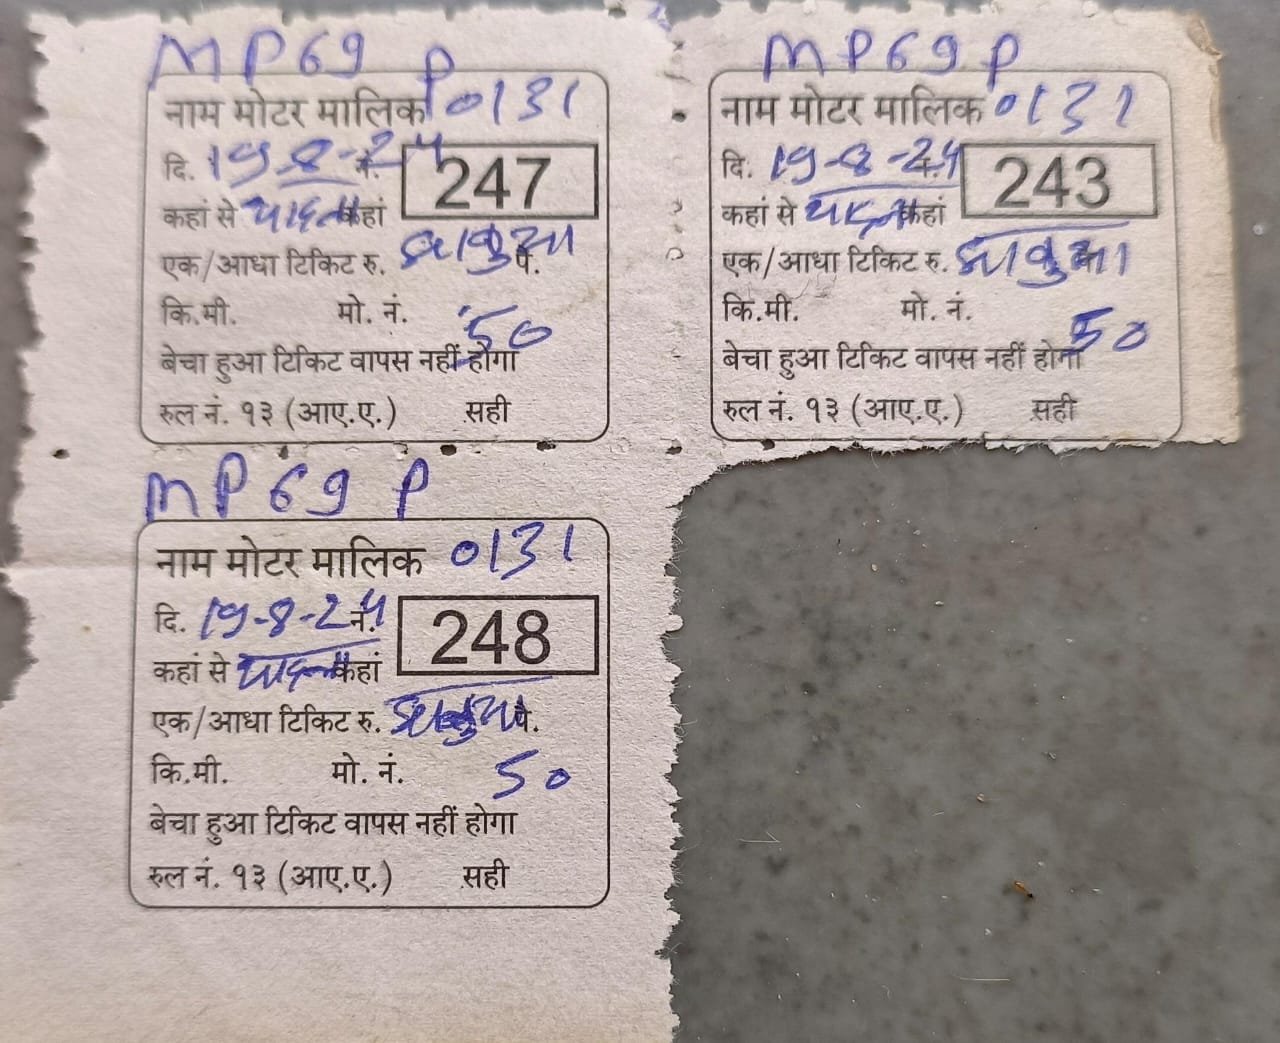 MP69 P
नाम मोटर मालिक 0131
दि. 19-8-24 नं. 247
कहां से कहां
एक/आधा टिकिट रु. पै.
कि.मी. मो. नं. 50
बेचा हुआ टिकिट वापस नहीं होगा
रुल नं. १३ (आए.ए.) सही
MP69 P
नाम मोटर मालिक 0131
दि. 19-8-24 नं. 243
कहां से कहां
एक/आधा टिकिट रु.
कि.मी. मो. नं. 50
बेचा हुआ टिकिट वापस नहीं होगा
रुल नं. १३ (आए.ए.) सही
MP69 P
नाम मोटर मालिक 0131
दि. 19-8-24 नं. 248
कहां से कहां
एक/आधा टिकिट रु. पै.
कि.मी. मो. नं. 50
बेचा हुआ टिकिट वापस नहीं होगा
रुल नं. १३ (आए.ए.) सही